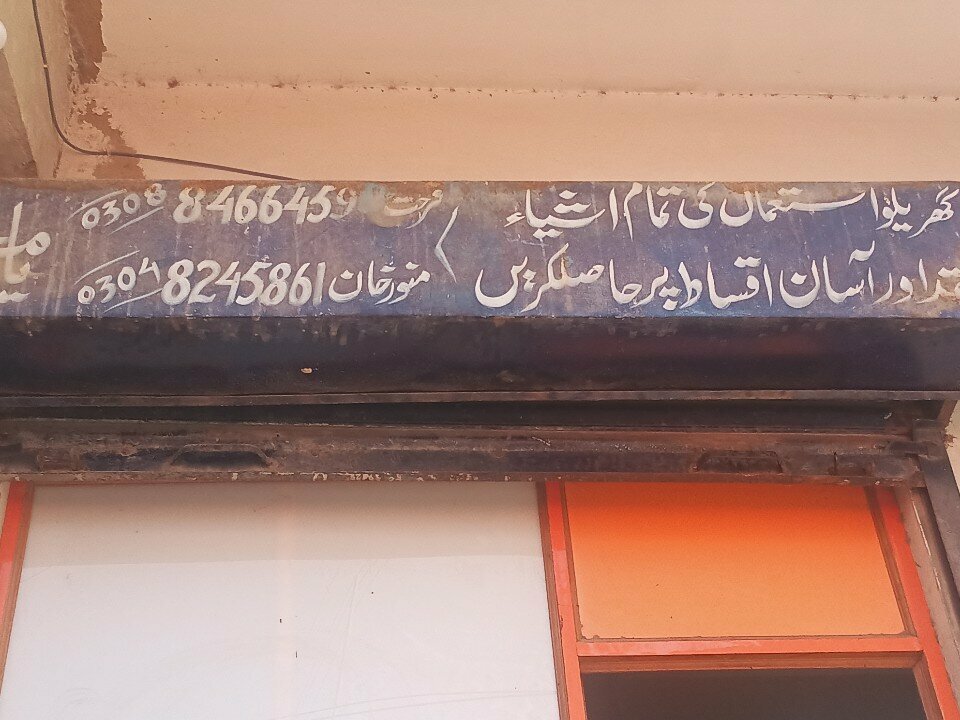 گھریلو استعمال کی تمام اشیاء
نقد اور آسان اقساط پر حاصل کریں
0308 8466459
منور خان 8245861 0304